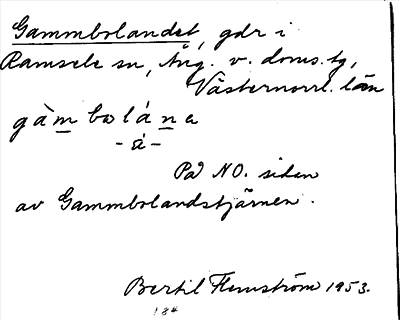 Gammbolandet, gdr i
Ramsele sn, Ång. v. doms. tg,
Västernorrl. län
gàm̲bolán̲a
-á̀-
På NO. sidan
av Gammbolandstjärnen.
Bertil Flemström 1953.
184